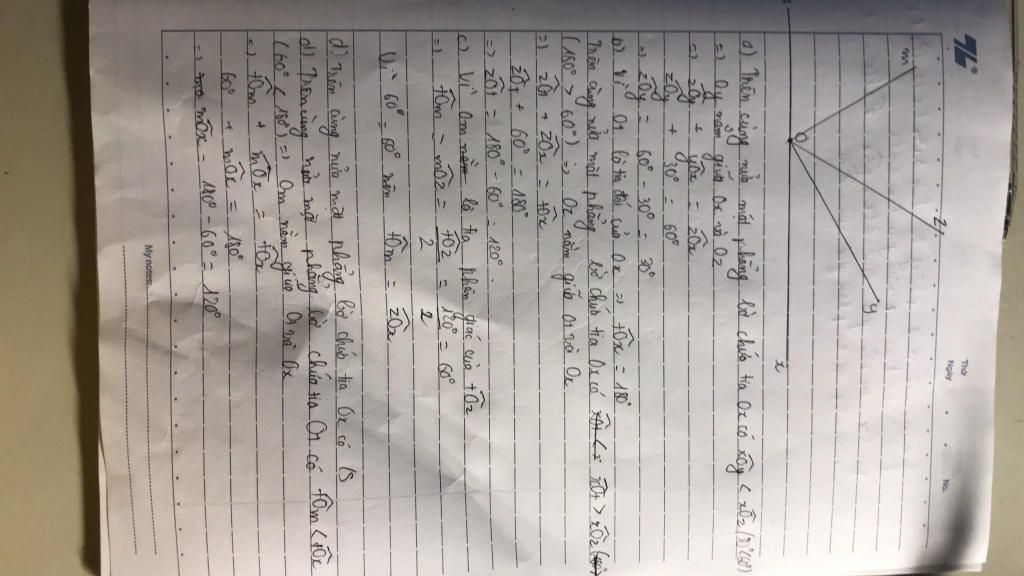 Thứ
Ngày
No.
m
z
y
O
x
a) Trên cùng nửa mặt phẳng bờ chứa tia Ox có xÔy < xÔz (30°<60°)
=) Oy nằm giữa Ox và Oz
=) zÔy + yÔx = zÔx
zÔy + 30° = 60°
=) zÔy = 60° - 30° = 30°
b) Vì Ot là tia đối của Ox =) tÔx = 180°
Trên cùng nửa mặt phẳng bờ chứa tia Ox có xÔt > xÔz
(180° > 60°) =) Oz nằm giữa Ot và Ox
=) zÔt + zÔx = tÔx
zÔt + 60° = 180°
=) zÔt = 180° - 60° = 120°
c) Vì Om là tia phân giác của tÔz
=) tÔm = mÔz = tÔz / 2 = 120° / 2 = 60°
Vì 60° = 60° nên tÔm = zÔx
d) Trên cùng nửa mặt phẳng bờ chứa tia Ox có
d) Trên cùng nửa mặt phẳng bờ chứa tia Ot có tÔm < tÔx
(60° < 180°) =) Om nằm giữa Ot và Ox
=) tÔm + mÔx = tÔx
60° + mÔx = 180°
=) mÔx = 180° - 60° = 120°
My notes: